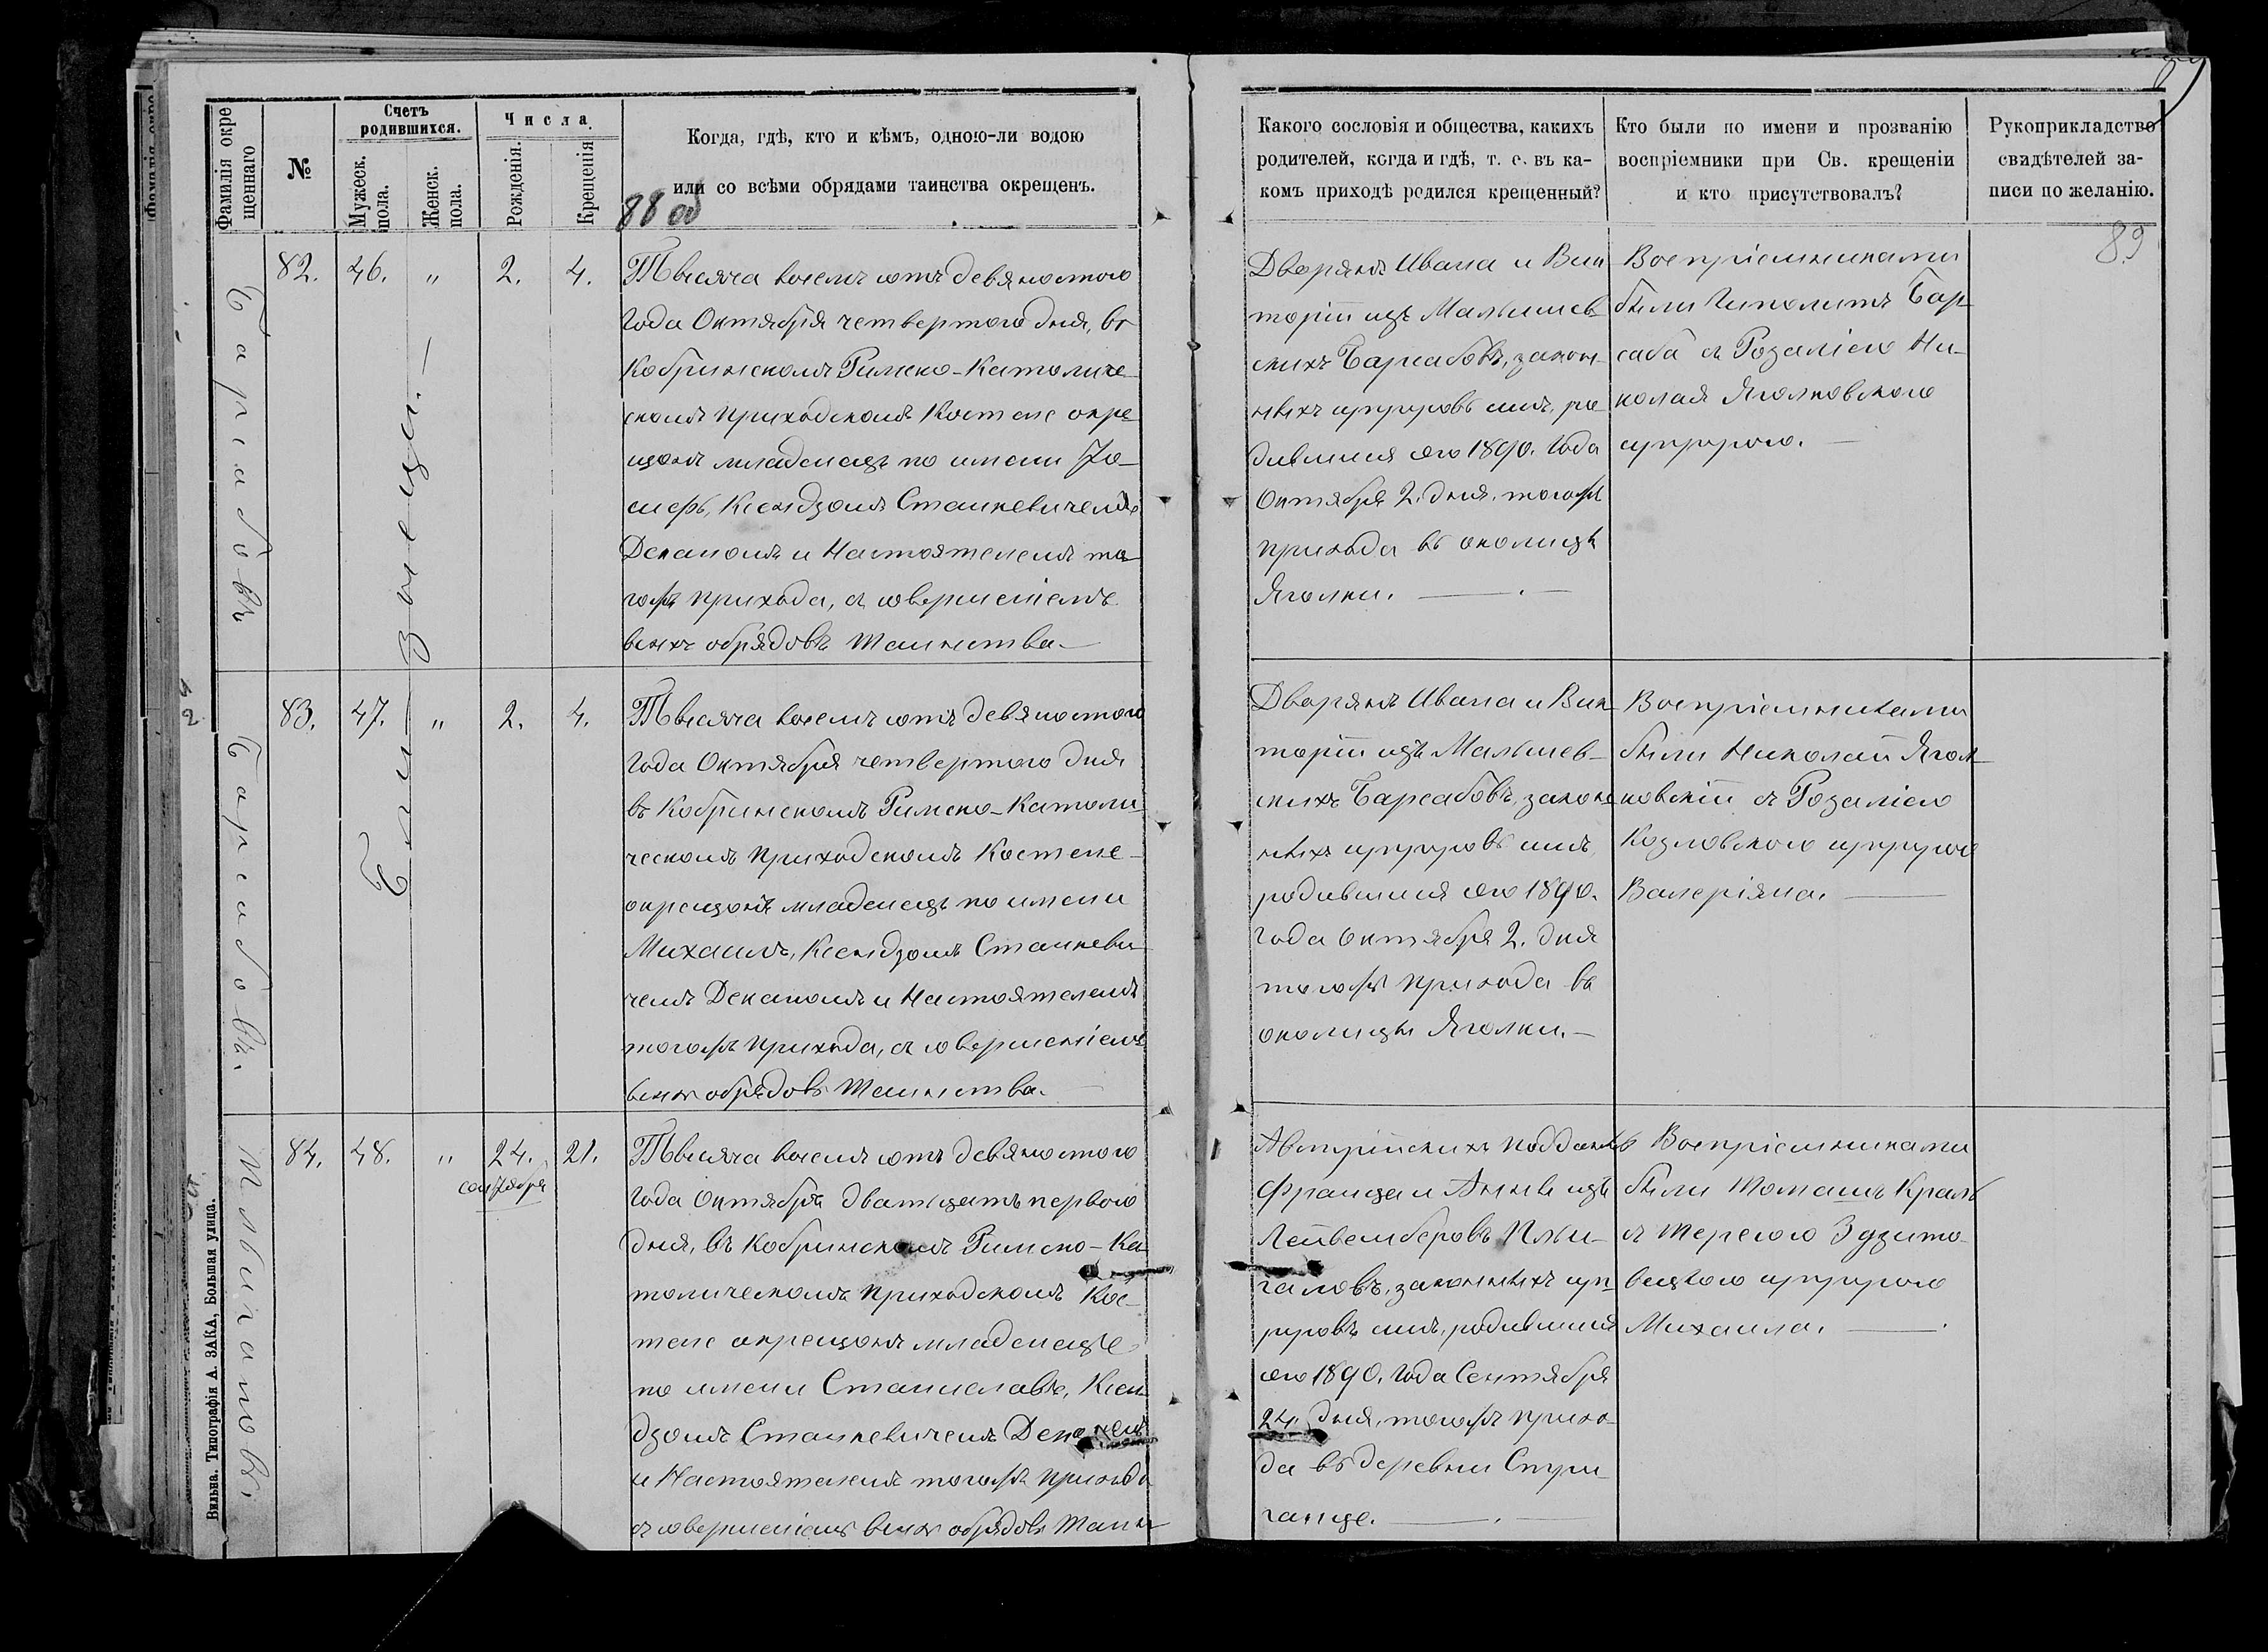 Фамилія окрещеннаго
№
Счетъ родившихся.
Мужеск. пола.
Женск. пола.
Числа
Рожденія.
Крещенія
Когда, гдѣ, кто и кѣмъ, одною-ли водою
или со всѣми обрядами таинства окрещенъ.
88 об
Барсабовъ
82. 46. " 2. 4.
Тысяча восемь сотъ девяностого
Года Октября четвертого дня, въ
Кобринскомъ Римско-Католиче-
скомъ приходскомъ Костеле окре-
щонъ младенецъ по имени Іо-
сифъ, Ксендзомъ Станкевичемъ
Деканомъ и Настоятелемъ то-
гожъ прихода, съ совершеніемъ
всехъ обрядовъ Таинства.—
Близнецы.—
Барсабовъ.
83. 47. " 2. 4.
Тысяча восемь сотъ девяностого
Года Октября четвертого дня
въ Кобринскомъ Римско-Католи-
ческомъ приходскомъ Костеле
окрещонъ младенецъ по имени
Михаилъ, Ксендзомъ Станкеви-
чемъ Деканомъ и Настоятелемъ
тогожъ прихода, съ совершеніемъ
всехъ обрядовъ Таинства.—
84. 48. " 24. 21.
сентября
Тысяча восемь сотъ девяностого
Года Октября дватцать первого
дня, въ Кобринскомъ Римско-Ка-
толическомъ приходскомъ Кос-
теле окрещонъ младенецъ
по имени Станиславъ, Ксен-
дзомъ Станкевичемъ Деканомъ
и Настоятелемъ тогожъ прихода
съ совершеніемъ всехъ обрядовъ Таин
Вильна. Типографія А. ЗАКА, Большая улица.
Какого сословія и общества, какихъ
родителей, когда и гдѣ, т. е. въ ка-
комъ приходѣ родился крещенный?
Кто были по имени и прозванію
воспріемники при Св. крещеніи
и кто присутствовалъ?
Рукоприкладство
свидѣтелей за-
писи по желанію.
89
Дворянъ Ивана и Вик
торіи изъ Малышев-
скихъ Барсабовъ, закон-
ныхъ супруговъ сынъ, ро-
дившійся сего 1890. Года
Октября 2. дня. тогожъ
прихода въ околицѣ
Яголки. —
Воспріемниками
были Иполитъ Бар-
саба съ Розаліею Ни-
колая Яголковского
супругою. —
Дворянъ Ивана и Вик-
торіи изъ Малышев-
скихъ Барсабовъ, закон-
ныхъ супруговъ сынъ
родившійся сего 1890.
Года Октября 2. дня
тогожъ прихода въ
околицы Яголки.—
Воспріемниками
были Николай Ягол-
ковскій съ Розаліею
Козловского супругою
Валеріяна. —
Австрійскихъ подданныхъ
Франца и Анны изъ
супруговъ сынъ, родившійся
сего 1890. Года Сентября
24. дня, тогожъ прихо-
да въ деревни Стри-
ганце. —
Воспріемниками
были Томашъ Краль
съ Терезою
супругою
Михаила. —